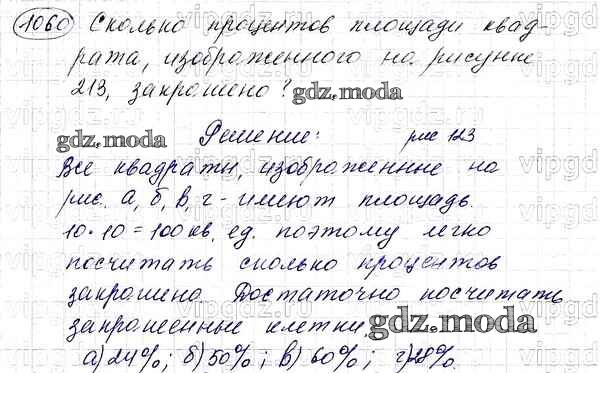 1060 Сколько процентов площади квад-
рата, изображенного на рисунке
213, закрашено?
gdz.moda
gdz.moda
Решение: рис 123
Все квадраты, изображенные на
рис. а, б, в, г - имеют площадь.
10·10=100 кв. ед. поэтому легко
посчитать сколько процентов
закрашено. Достаточно посчитать
закрашенные клетки
gdz.moda
а) 24%; б) 50%; в) 60%; г) 28%.